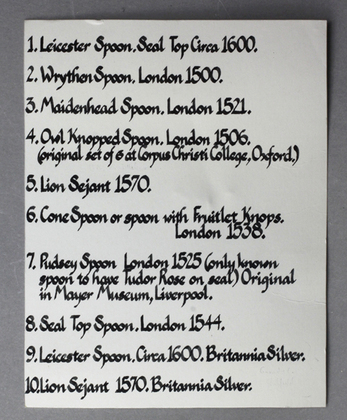 1. Leicester Spoon. Seal Top Circa 1600.
2. Wrython Spoon, London 1500.
3. Maidenhead Spoon. London 1521.
4. Owl Knopped Spoon. London 1506.
(original set of 6 at Corpus Christi College, Oxford.)
5. Lion Sejant 1570.
6. Cone Spoon or spoon with Fruitlet Knops.
London 1538.
7. Pudsey Spoon London 1525 (only known
spoon to have Tudor Rose on seal) Original
in Mayer Museum, Liverpool.
8. Seal Top Spoon. London 1544.
9. Leicester Spoon. Circa 1600. Britannia Silver.
10. Lion Sejant 1570. Britannia Silver.